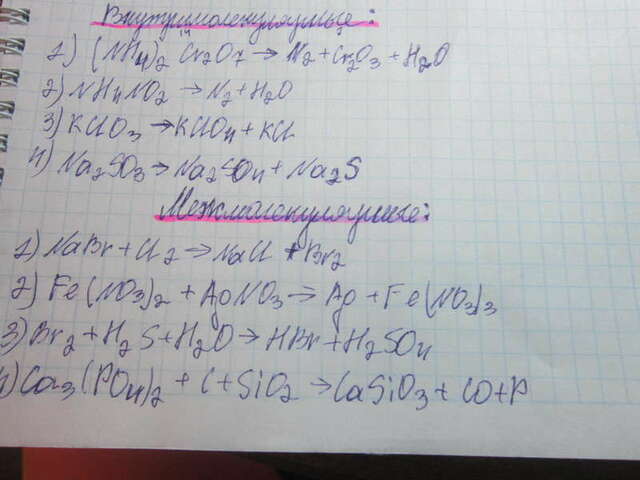 Внутримолекулярные:
1) (NH4)2 Cr2O7 → N2 + Cr2O3 + H2O
2) NH4NO2 → N2 + H2O
3) KClO3 → KClO4 + KCl
4) Na2SO3 → Na2SO4 + Na2S
Межмолекулярные:
1) NaBr + Cl2 → NaCl + Br2
2) Fe(NO3)2 + AgNO3 → Ag + Fe(NO3)3
3) Br2 + H2S + H2O → HBr + H2SO4
4) Ca3(PO4)2 + C + SiO2 → CaSiO3 + CO + P